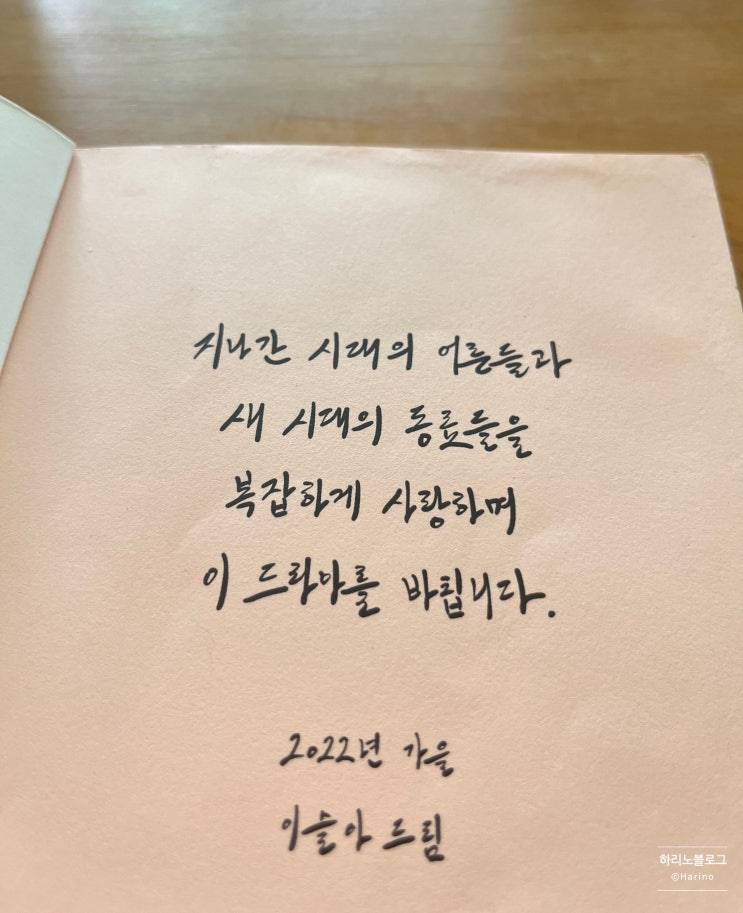 지나간 시대의 어른들과
새 시대의 동료들을
복잡하게 사랑하며
이 드라마를 바칩니다.
2022년 가을
이슬아 드림
하리노블로그
©Harino